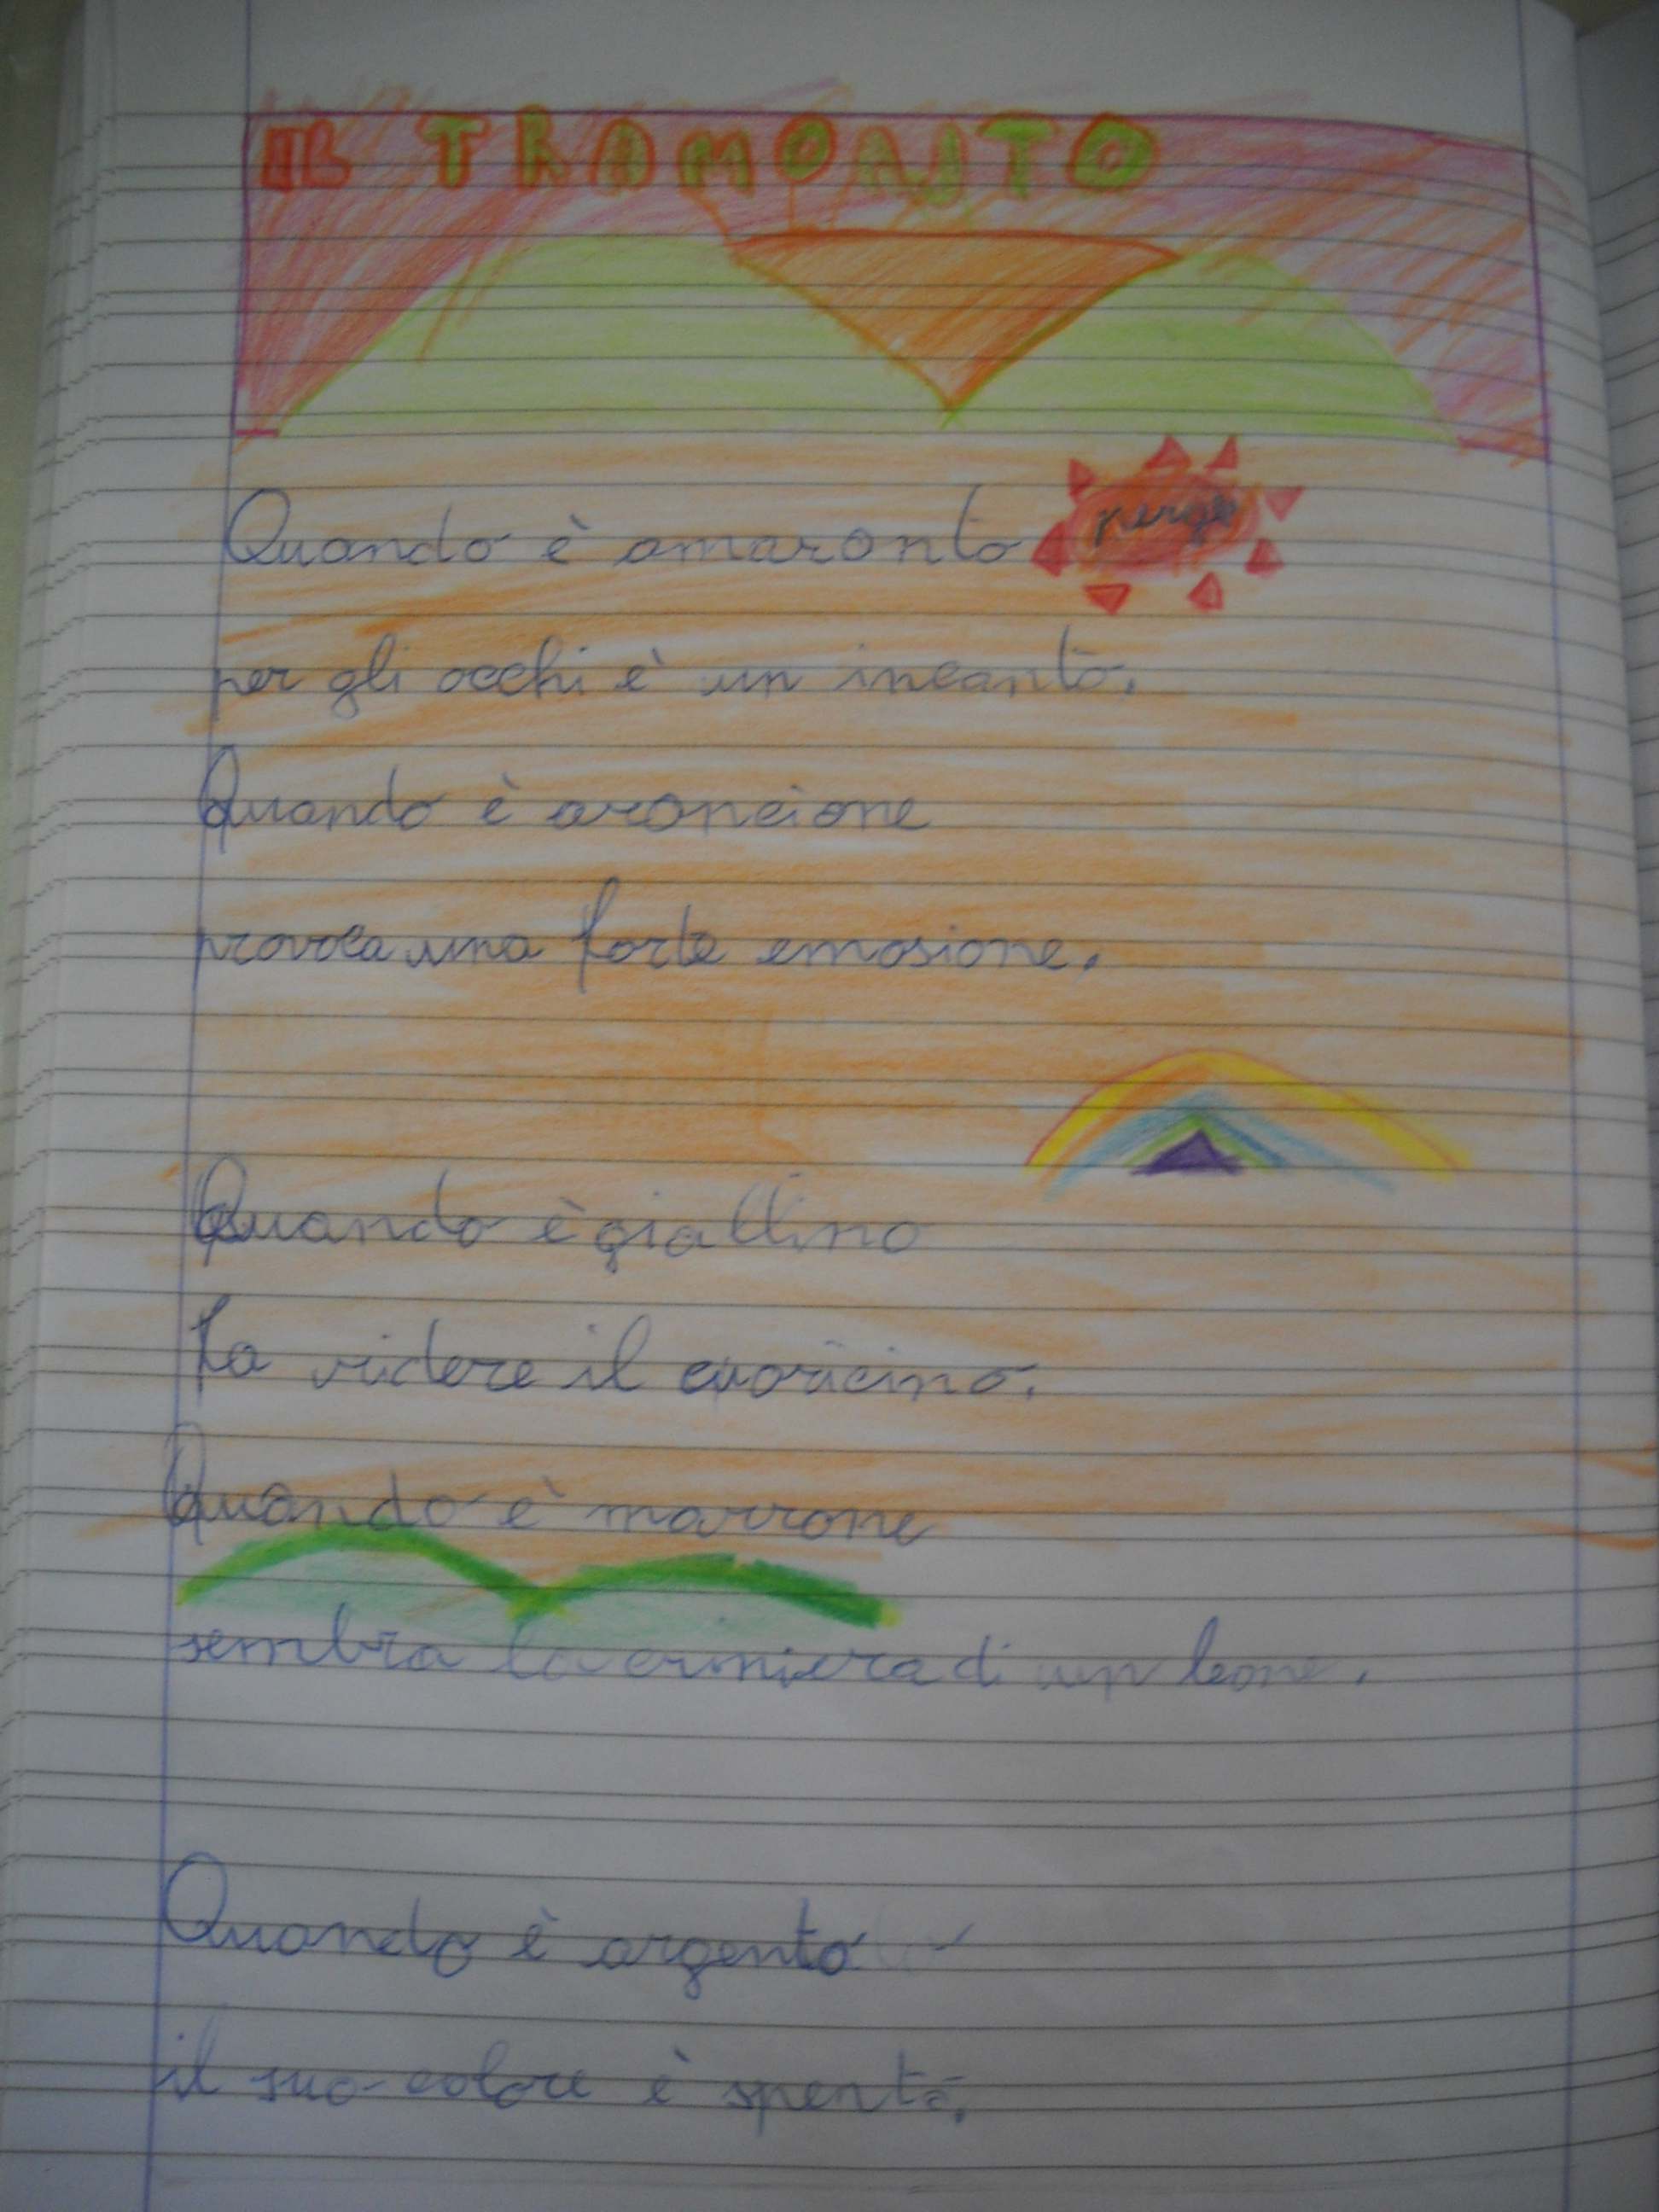 IL TRAMONTO
Quando è amaranto
per gli occhi è un incanto.
Quando è arancione
provoca una forte emosione.
Quando è giallino
fa ridere il cuoricino.
Quando è marrone
sembra la criniera di un leone.
Quando è argento
il suo colore è spento.